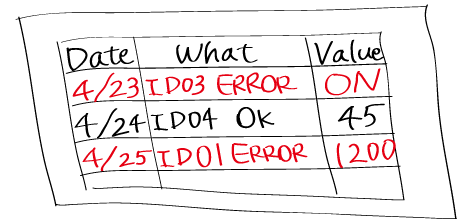 Date What Value
4/23 ID03 ERROR ON
4/24 ID04 Ok 45
4/25 ID01 ERROR 1200